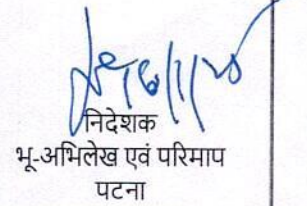 निदेशक
भू-अभिलेख एवं परिमाप
पटना